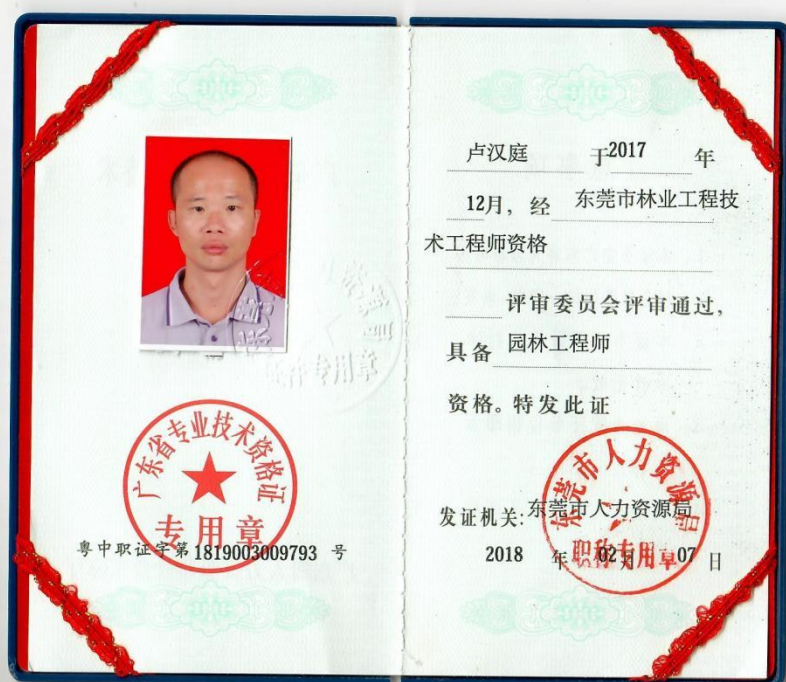 广东省专业技术资格证
专用章
粤中职证字第1819003009793 号
卢汉庭 于2017 年
12月，经 东莞市林业工程技
术工程师资格
评审委员会评审通过，
具备 园林工程师
资格。特发此证
东莞市人力资源局
发证机关：东莞市人力资源局
职称专用章
2018 年 02月 07 日